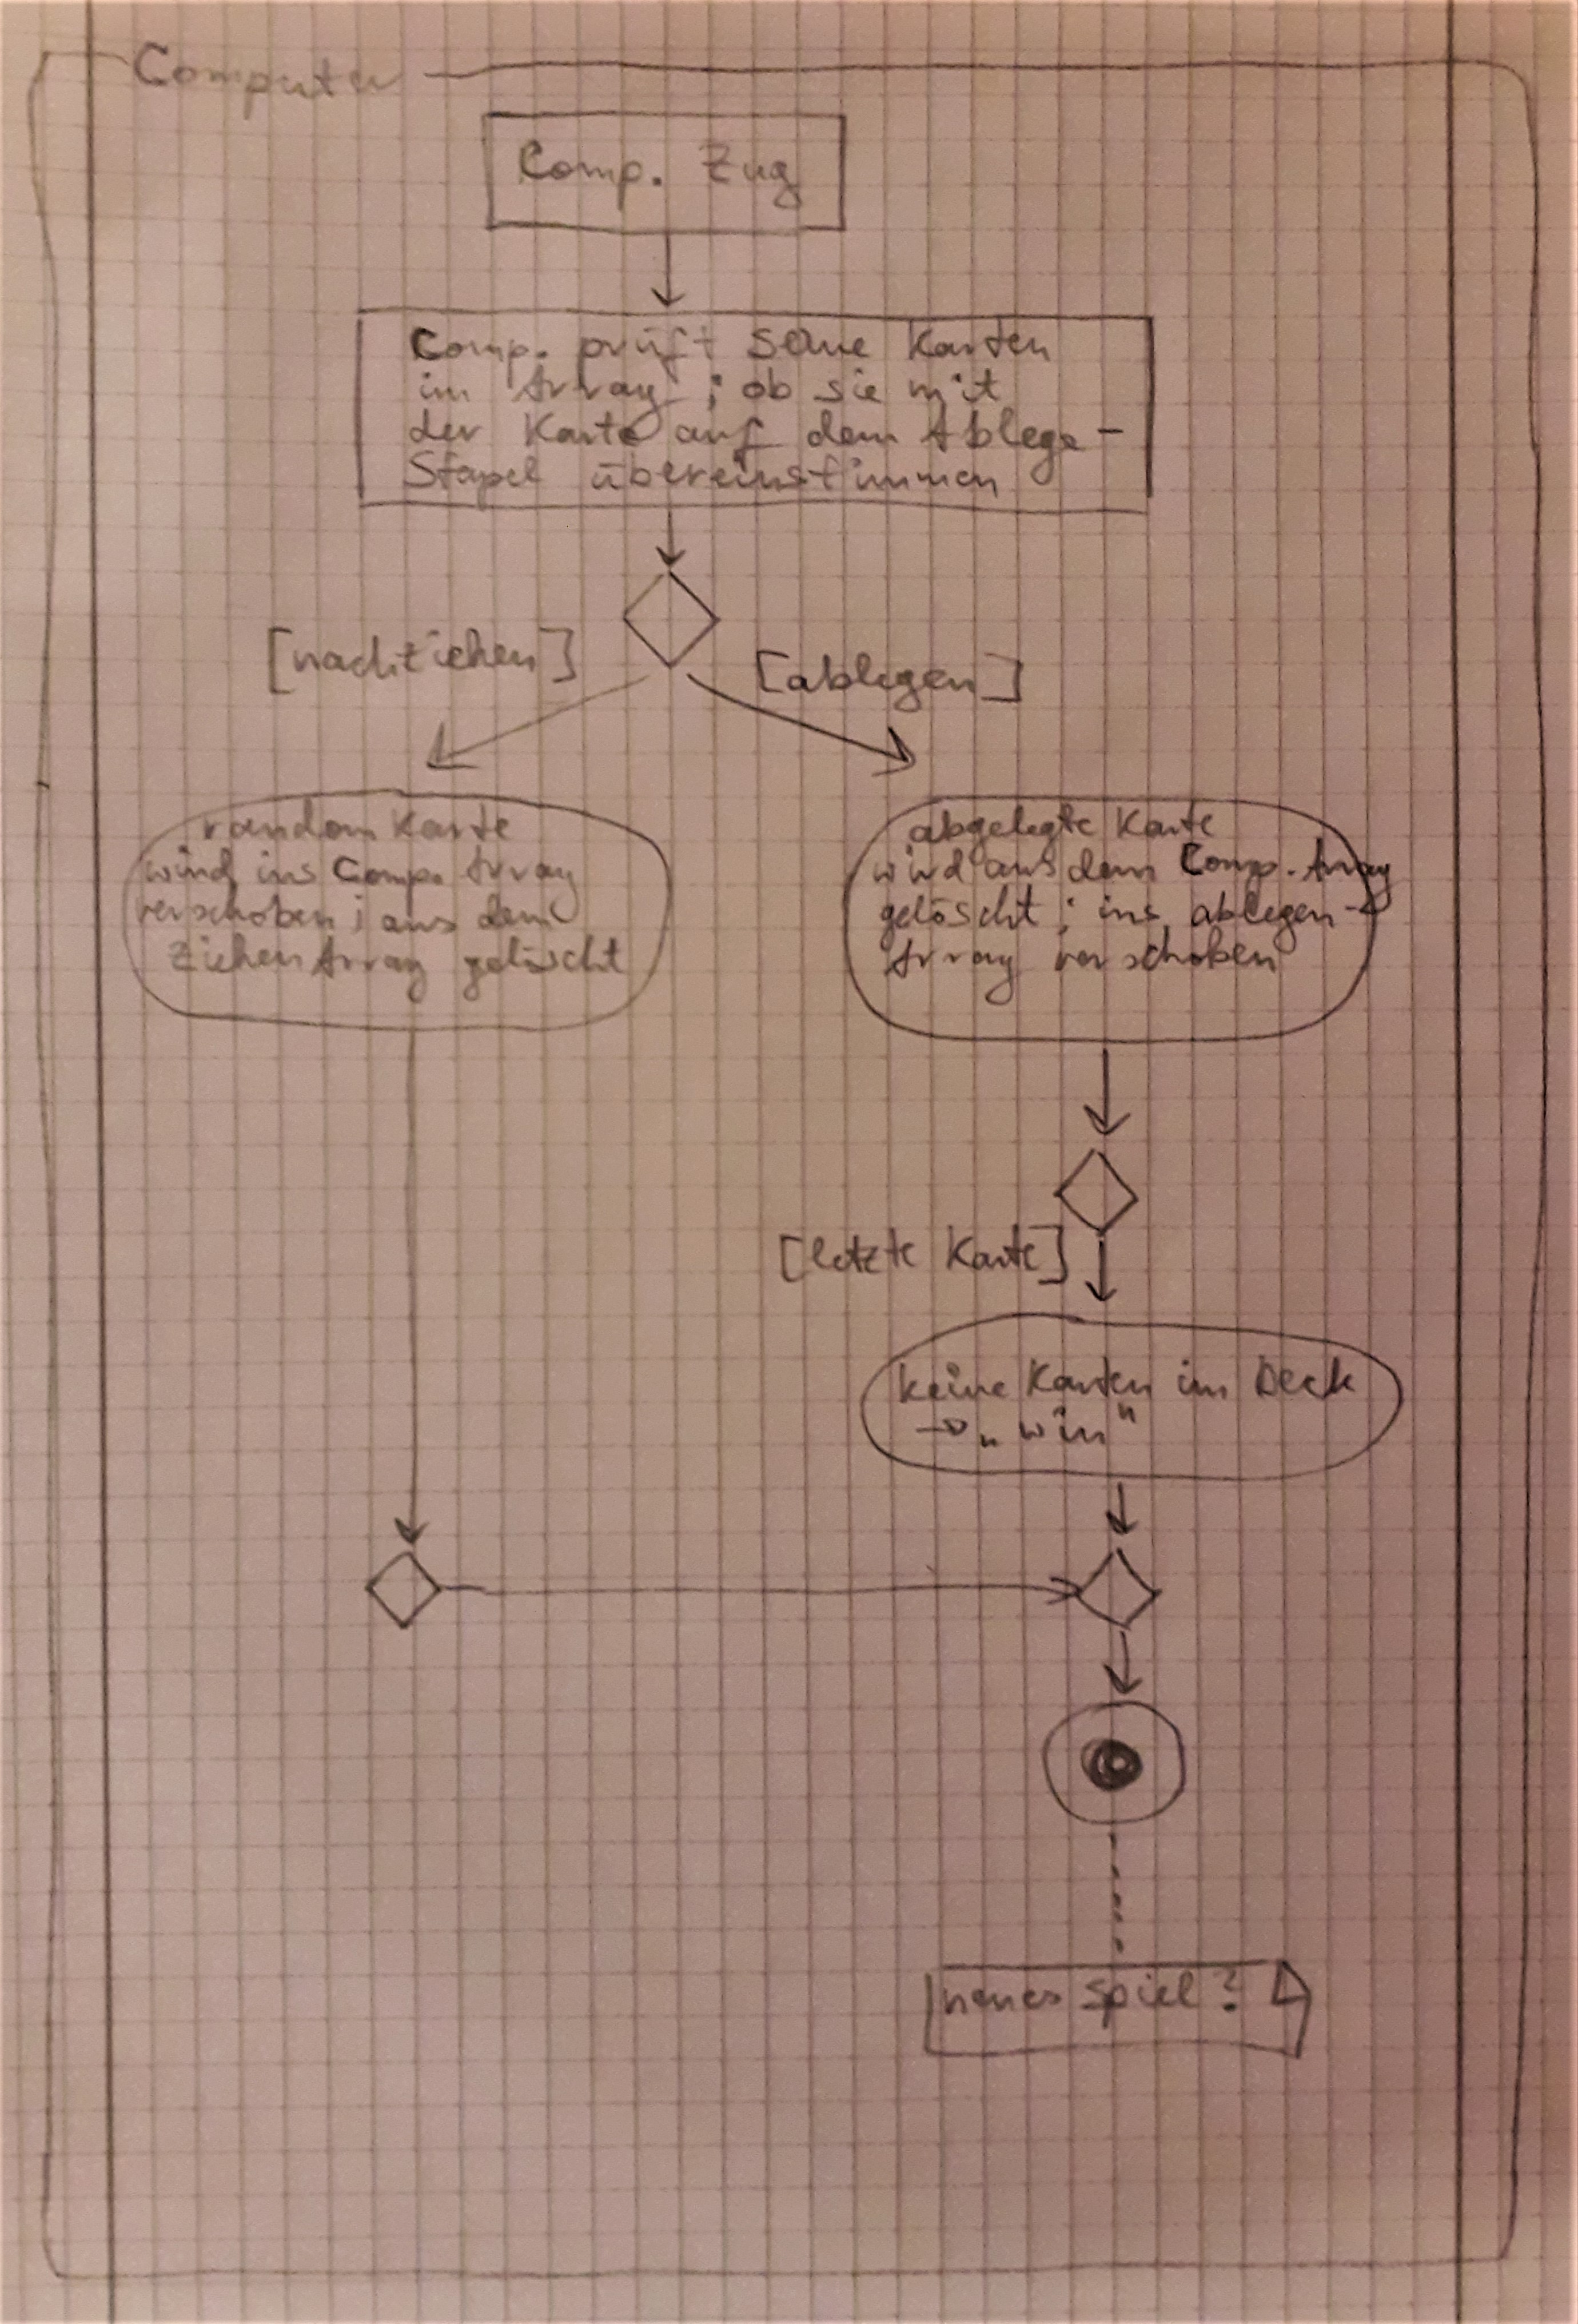 Computer
Comp. Zug
Comp. prüft seine Karten
im Array ; ob sie mit
der Karte auf dem Ablege-
Stapel übereinstimmen
[nachziehen]
[ablegen]
random Karte
wird ins Comp. Array
verschoben ; aus dem
Ziehen Array gelöscht
abgelegte Karte
wird aus dem Comp. Array
gelöscht ; ins ablegen-
Array verschoben
[letzte Karte]
keine Karten im Deck
→ „win"
neues Spiel ?